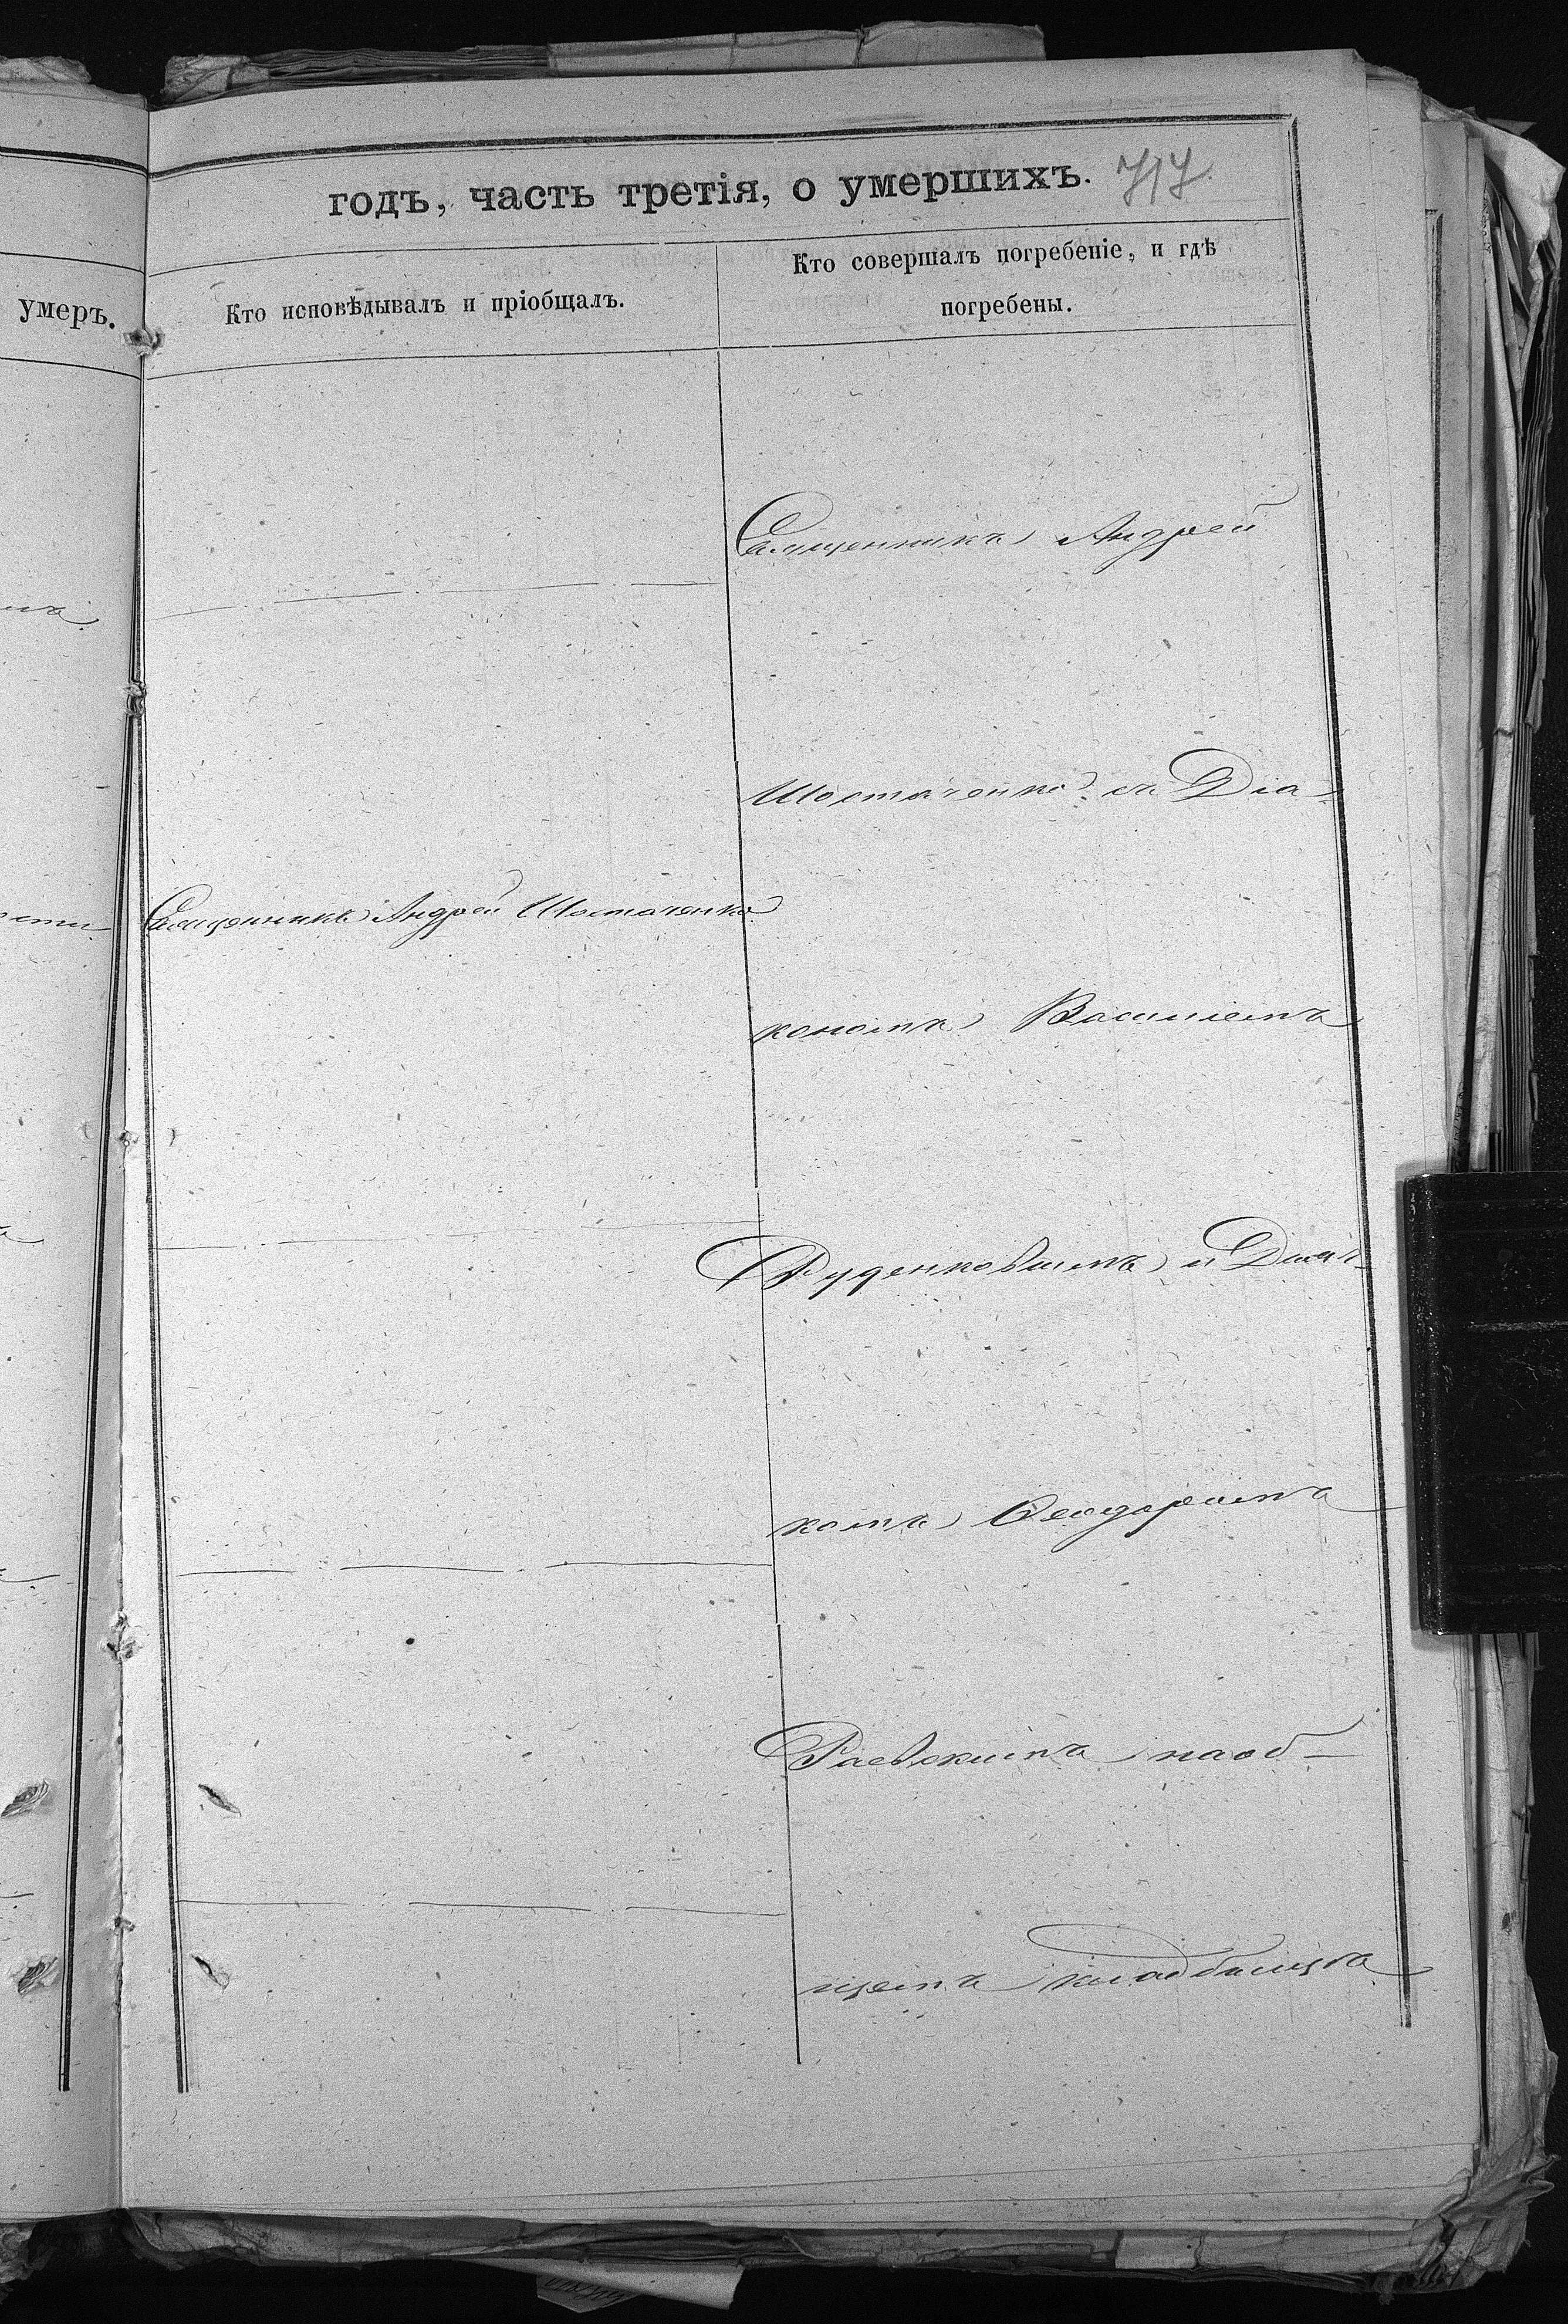 годъ, часть третія, о умершихъ. 717.
умеръ.
Кто исповѣдывалъ и пріобщалъ.
Кто совершалъ погребеніе, и гдѣ
погребены.
Священникъ Андрей
Шостаченко съ Діа-
Священникъ Андрей Шостаченко
кономъ Василіемъ
Руденковымъ и Дьяч-
комъ Ѳеодоромъ
Раевскимъ на об-
щемъ кладбищѣ